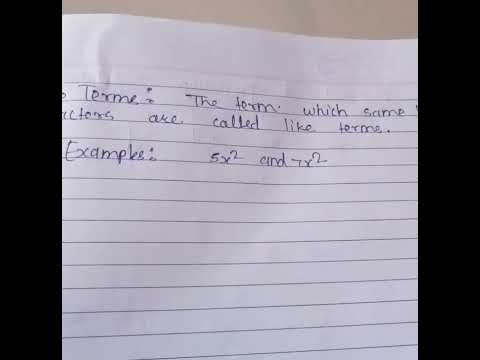 Terms: The term. which same
ctors are called like terms.
Examples: 5x² and 7x²